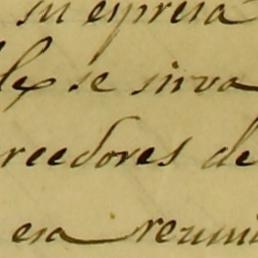 su expresa
se sirva
reedores de
esa reuni